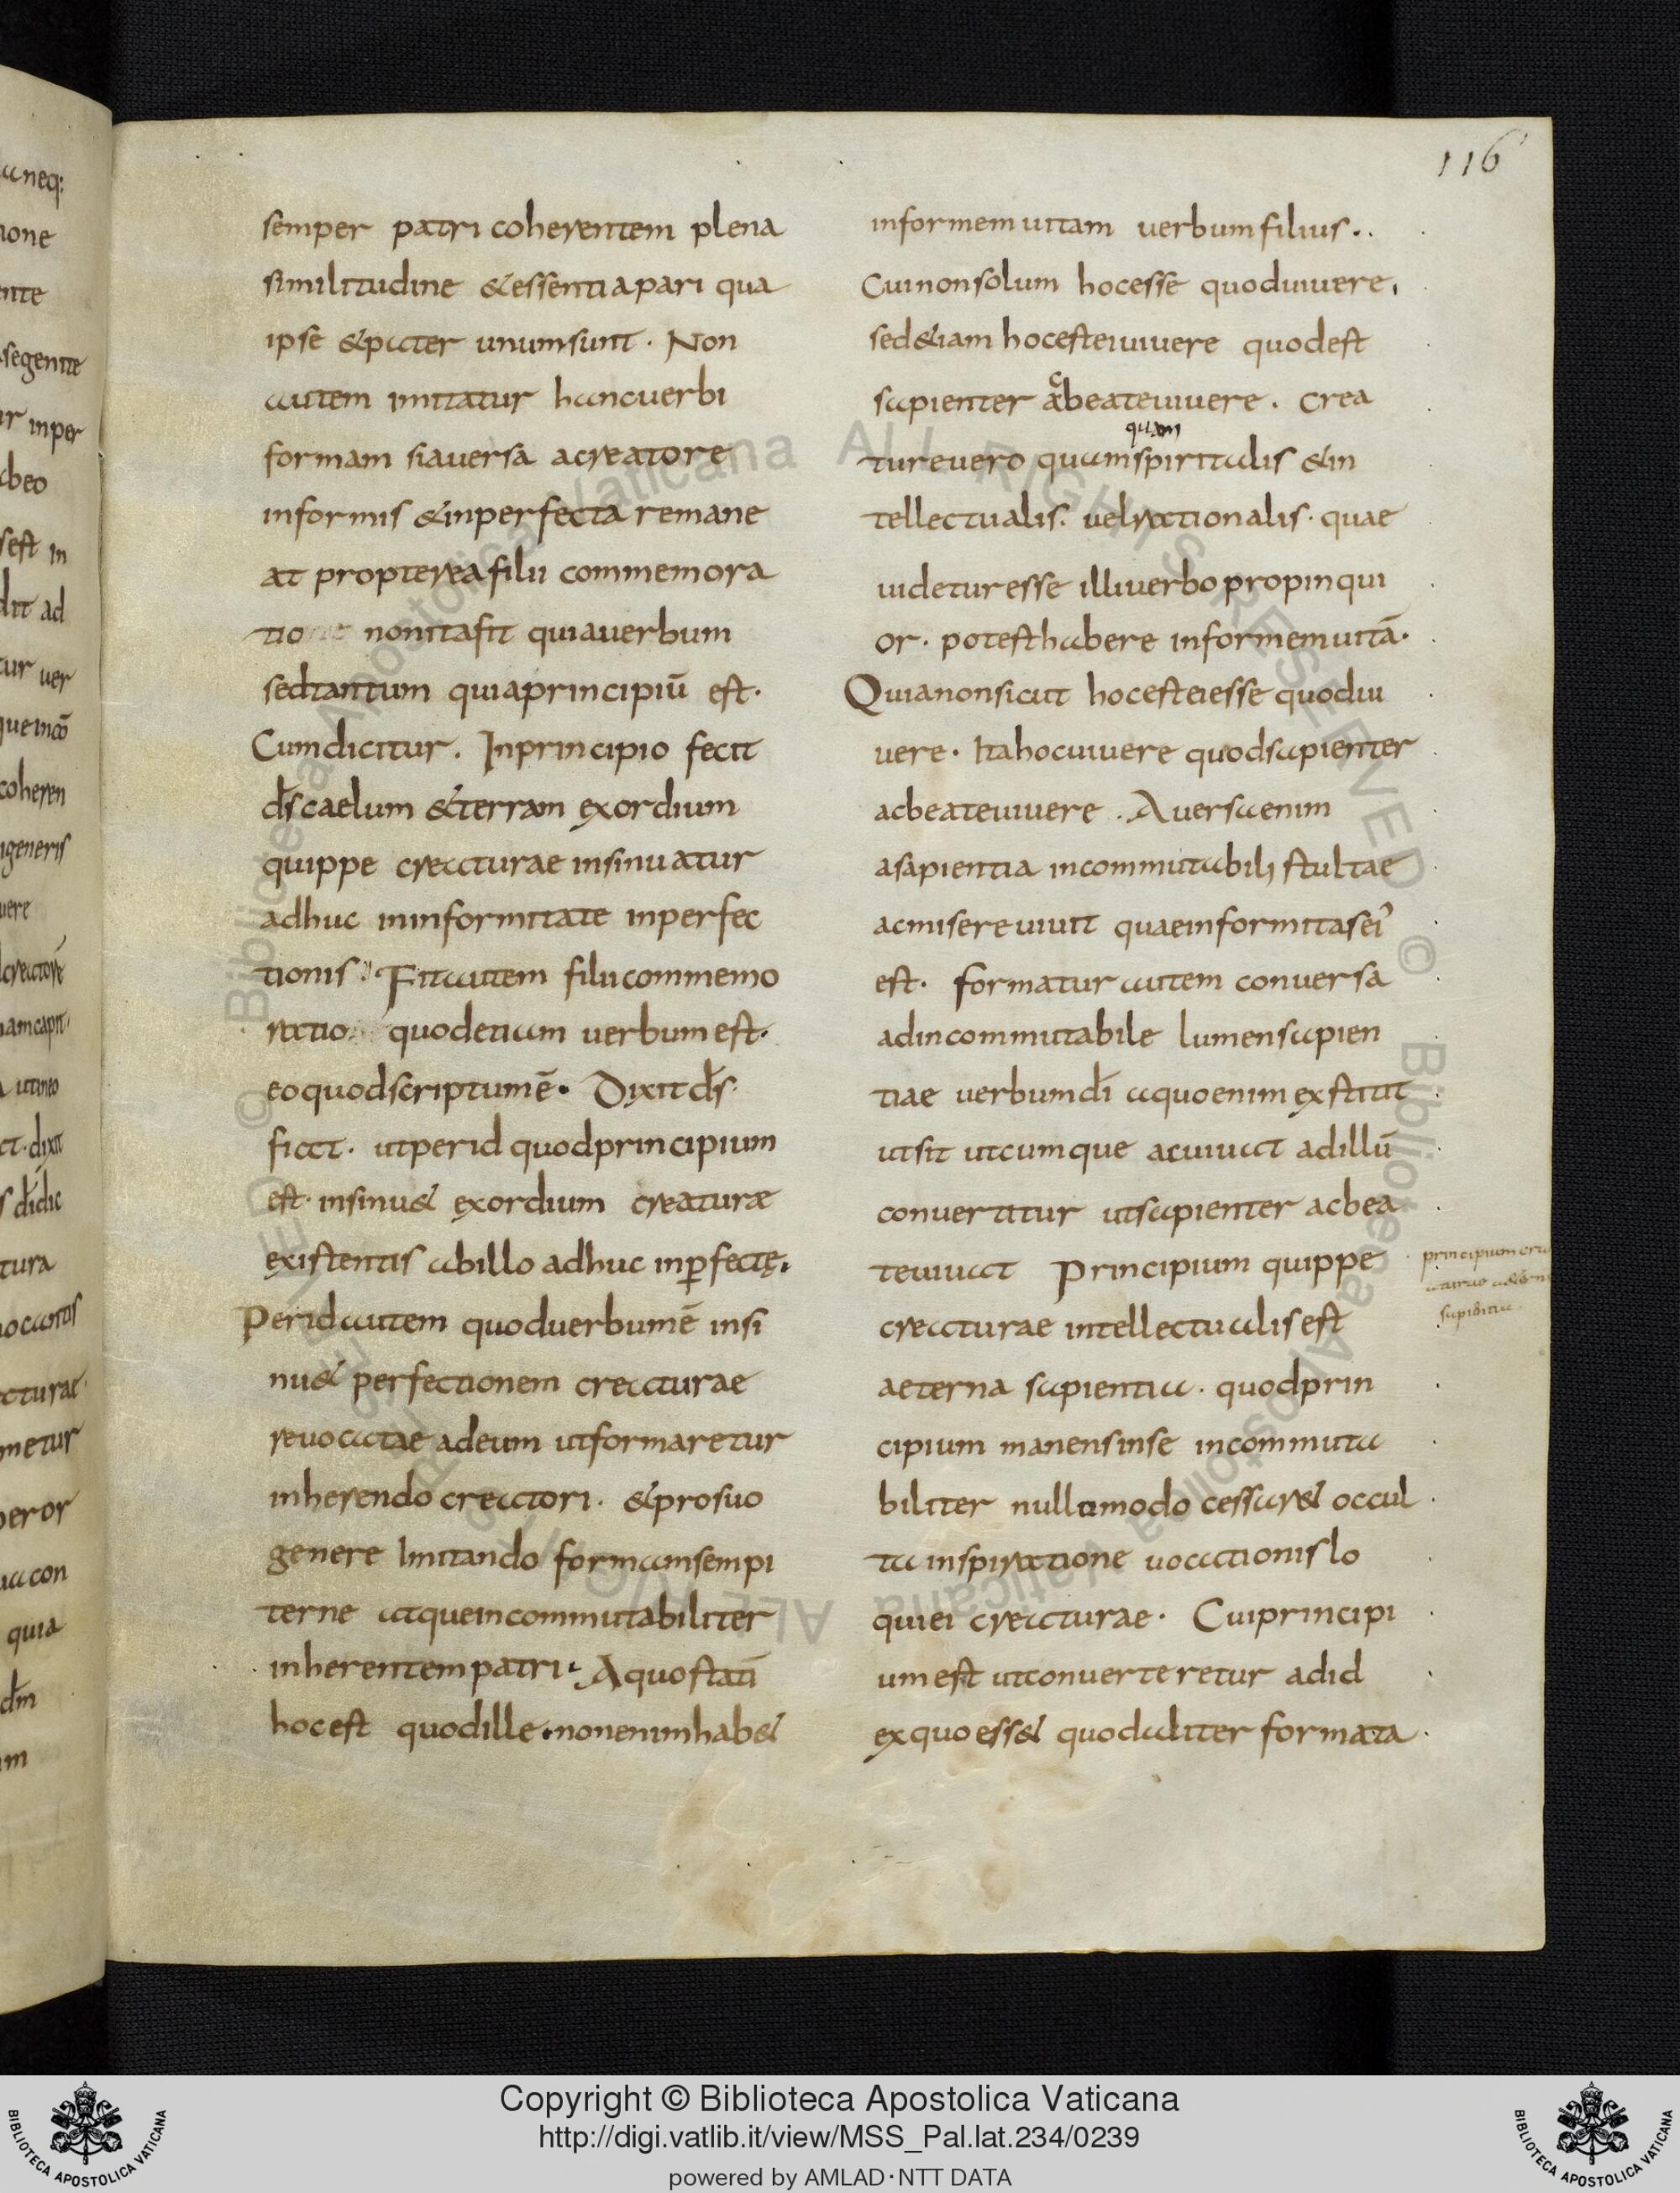 116
semper patri coherentem plena
similitudine & essentia pari qua
ipse & pater unum sunt. Non
autem imitatur hanc verbi
formam si aversa a creatore
informis & inperfecta remane
at propterea filii commemora
tio non ita fit quia verbum
sed tantum quia principiū est.
Cum dicitur. In principio fecit
d̄s caelum & terram exordium
quippe creaturae insinuatur
adhuc in informitate inperfec
tionis. Fit autem filii commemo
ratio quod etiam verbum est.
eo quod scriptum ē. Dixit d̄s.
fiat. ut per id quod principium
est. insinu& exordium creaturæ
existentis ab illo adhuc inp̄fectę.
Per id autem quod verbum ē insi
nu& perfectionem creaturae
revocatae ad eum ut formaretur
inherendo creatori. & pro suo
genere Imitando formam sempi
terne atque incommutabiliter
inherentem patri. A quo statī
hoc est quod ille. non enim hab&
informem vitam verbum filius..
Cui non solum hoc esse quod vivere,
sed &iam hoc est ei vivere quod est
sapienter ac beate vivere. Crea
quam
ture vero quam spiritalis & in
tellectualis. vel rationalis. quae
videtur esse illi verbo propinqui
or. potest habere informem vitā.
Quia non sicut hoc est ei esse quod vi
vere. Ita hoc vivere quod sapienter
ac beate vivere. Aversa enim
a sapientia incommutabili stultae
ac misere vivit quae informitas ei'
est. formatur autem conversa
ad incommutabile lumen sapien
tiae verbum dī a quo enim exstitit
ut sit utcumque ac vivat ad illū
convertitur ut sapienter ac bea
te vivat Principium quippe
creaturae intellectualis est
aeterna sapientia. quod prin
cipium manens in se incommuta
biliter nullo modo cessar& occul
ta inspiratione vocationis lo
qui ei creaturae. Cui principi
um est ut converteretur ad id
ex quo ess& quod aliter formata
principium
Copyright © Biblioteca Apostolica Vaticana
http://digi.vatlib.it/view/MSS_Pal.lat.234/0239
powered by AMLAD·NTT DATA
BIBLIOTECA APOSTOLICA VATICANA
BIBLIOTECA APOSTOLICA VATICANA